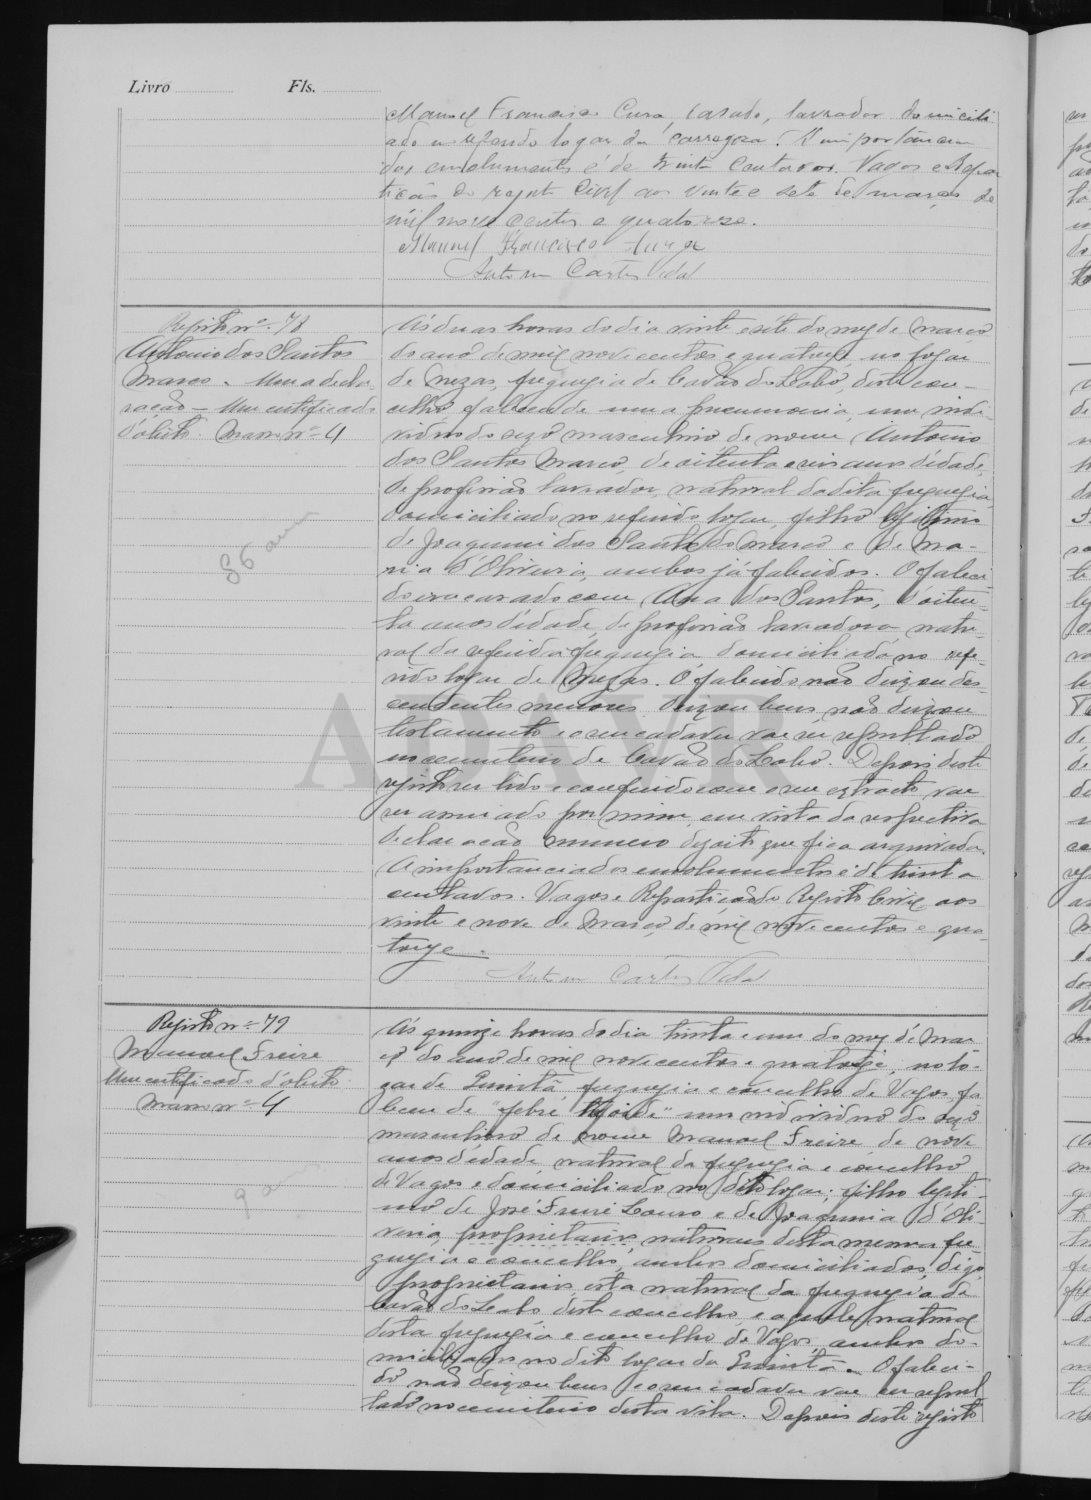 Livro Fls.
Manoel Francisco Cura, casado, lavrador domicili
ado no referido logar da Carregosa. A importancia
dos emolumentos é de trinta centavos. Vagos e Repar
tição do registo Civil aos vinte e sete de março de
mil nove centos e quatorze.
Manuel Francisco
Antonio Carlos Vidal
Registo nº 78
Antonio dos Santos
Marco. Uma decla
ração – Um certificado
d'obito. Masso nº 4
86 anos
Ás duas horas do dia vinte e sete do mez de Março
do ano de mil nove centos e quatorze no logar
de Mezas, freguezia de Covão do Lobo, deste con-
celho, faleceu de uma pneumonia, um indi-
viduo do sexo masculino de nome Antonio
dos Santos Marco, de oitenta e seis anos d'edade,
de profissão lavrador, natural da dita freguezia,
domiciliado no referido logar, filho legitimo
de Joaquim dos Santos do Marco e de Ma-
ria d'Oliveira, ambos já falecidos. O faleci-
do era casado com Ana dos Santos, d'oiten-
ta anos d'edade, de profissão lavradora, natu-
ral da referida freguezia domiciliada no refe-
rido logar de Mezas. O falecido não deixou des-
cendentes menores, deixou bens, não deixou
testamento e o seu cadaver vae ser sepultado
no cemiterio de Covão do Lobo. Depois deste
registo ser lido e conferido com o seu extracto vae
ser assinado por mim, em vista da respectiva
declaração numero dezoito que fica arquivada.
A importancia dos emolumentos é de trinta
centavos. Vagos e Repartição do Registo Civil aos
vinte e nove de Março de mil nove centos e qua-
torze.
Antonio Carlos Vidal
Registo nº 79
Manoel Freire
Um certificado d'obito
Masso nº 4
9 anos
Ás quinze horas do dia trinta e um do mez de Mar
ço do ano de mil nove centos e quatorze, no lo-
gar de Quintã, freguezia e concelho de Vagos, fa
leceu de "febre tifoide" um individuo do sexo
masculino de nome Manoel Freire, de nove
anos d'edade, natural da freguezia e concelho
de Vagos e domiciliado no dito logar; filho legiti-
mo de José Freire Louro e de Joaquina d'Oli-
veira, proprietarios, naturaes desta mesma fre-
guezia e concelho, ambos domiciliados, digo,
proprietarios, esta natural da freguezia de
Covão do Lobo, deste concelho, e aquele natural
desta freguezia e concelho de Vagos, ambos do-
miciliados no dito logar da Quintã. O faleci-
do não deixou bens e o seu cadaver vae ser sepul
tado no cemiterio desta vila. Depois deste registo
ADAVR